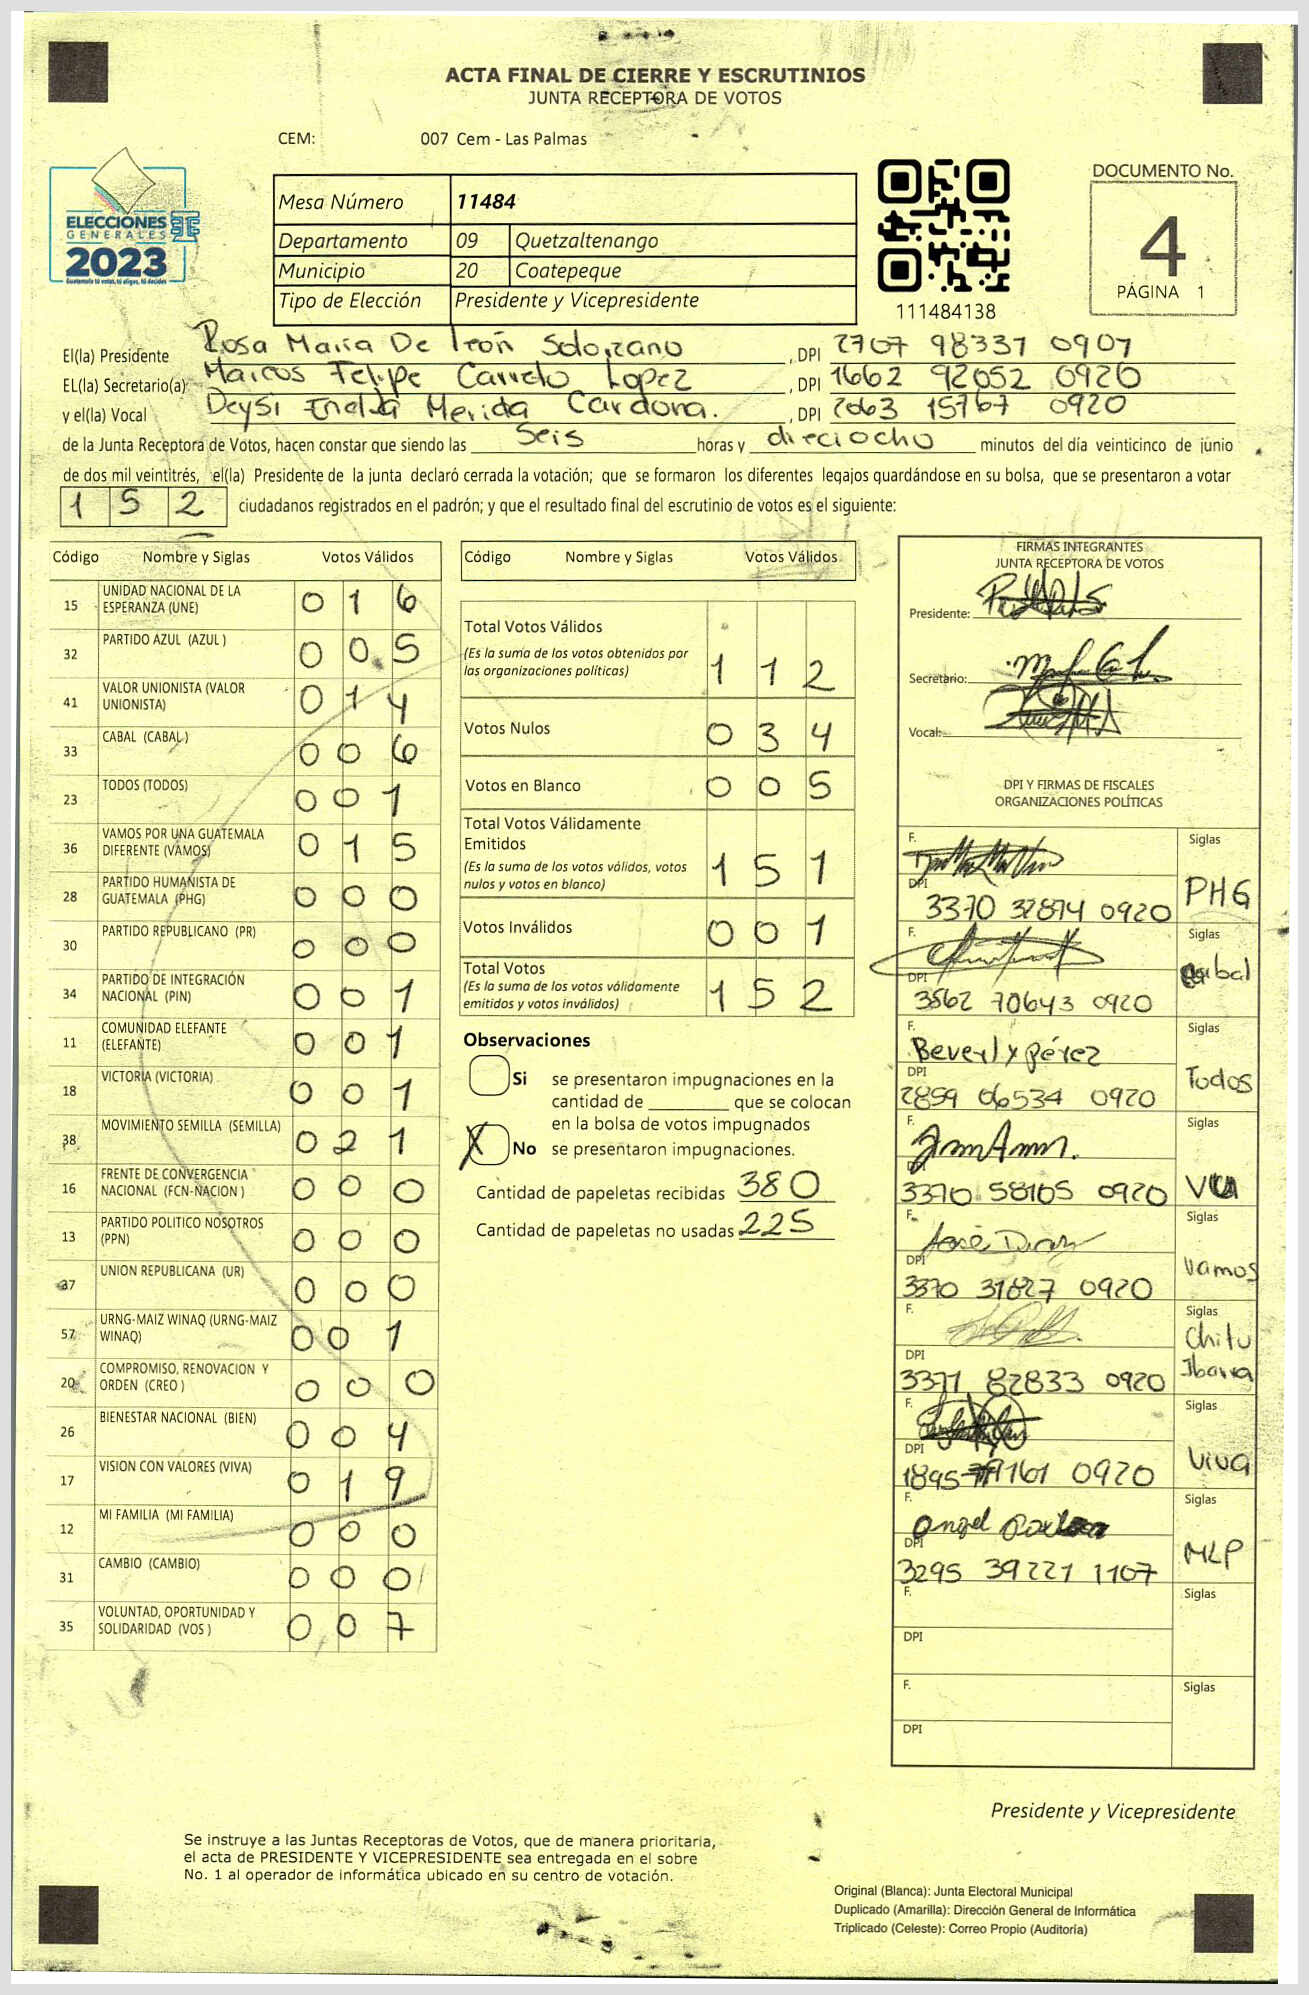 ACTA FINAL DE CIERRE Y ESCRUTINIOS
JUNTA RECEPTORA DE VOTOS
CEM: 007 Cem - Las Palmas
ELECCIONES
GENERALES
2023
Guatemala tú votas, tú eliges, tú decides
Mesa Número 11484
Departamento 09 Quetzaltenango
Municipio 20 Coatepeque
Tipo de Elección Presidente y Vicepresidente
111484138
DOCUMENTO No.
4
PÁGINA 1
El(la) Presidente Rosa Maria De león Solorzano , DPI 2707 98331 0901
EL(la) Secretario(a) Marcos Felipe Carreto Lopez , DPI 1662 92052 0920
y el(la) Vocal Deysi Merida Cardona. , DPI 2063 15767 0920
de la Junta Receptora de Votos, hacen constar que siendo las Seis horas y dieciocho minutos del día veinticinco de junio
de dos mil veintitrés, el(la) Presidente de la junta declaró cerrada la votación; que se formaron los diferentes legajos guardándose en su bolsa, que se presentaron a votar
152 ciudadanos registrados en el padrón; y que el resultado final del escrutinio de votos es el siguiente:
Código Nombre y Siglas Votos Válidos
15 UNIDAD NACIONAL DE LA
ESPERANZA (UNE) 016
32 PARTIDO AZUL (AZUL ) 005
41 VALOR UNIONISTA (VALOR
UNIONISTA) 014
33 CABAL (CABAL ) 006
23 TODOS (TODOS) 001
36 VAMOS POR UNA GUATEMALA
DIFERENTE (VAMOS) 015
28 PARTIDO HUMANISTA DE
GUATEMALA (PHG) 000
30 PARTIDO REPUBLICANO (PR) 000
34 PARTIDO DE INTEGRACIÓN
NACIONAL (PIN) 001
11 COMUNIDAD ELEFANTE
(ELEFANTE) 001
18 VICTORIA (VICTORIA) 001
38 MOVIMIENTO SEMILLA (SEMILLA) 021
16 FRENTE DE CONVERGENCIA
NACIONAL (FCN-NACION ) 000
13 PARTIDO POLITICO NOSOTROS
(PPN) 000
37 UNION REPUBLICANA (UR) 000
57 URNG-MAIZ WINAQ (URNG-MAIZ
WINAQ) 001
20 COMPROMISO, RENOVACION Y
ORDEN (CREO ) 000
26 BIENESTAR NACIONAL (BIEN) 004
17 VISION CON VALORES (VIVA) 019
12 MI FAMILIA (MI FAMILIA) 000
31 CAMBIO (CAMBIO) 000
35 VOLUNTAD, OPORTUNIDAD Y
SOLIDARIDAD (VOS ) 007
Código Nombre y Siglas Votos Válidos
Total Votos Válidos
(Es la suma de los votos obtenidos por
las organizaciones políticas) 112
Votos Nulos 034
Votos en Blanco 005
Total Votos Válidamente
Emitidos
(Es la suma de los votos válidos, votos
nulos y votos en blanco) 151
Votos Inválidos 001
Total Votos
(Es la suma de los votos válidamente
emitidos y votos inválidos) 152
Observaciones
Si se presentaron impugnaciones en la
cantidad de ________ que se colocan
en la bolsa de votos impugnados
X No se presentaron impugnaciones.
Cantidad de papeletas recibidas 380
Cantidad de papeletas no usadas 225
FIRMAS INTEGRANTES
JUNTA RECEPTORA DE VOTOS
Presidente:
Secretario:
Vocal:
DPI Y FIRMAS DE FISCALES
ORGANIZACIONES POLÍTICAS
F. Siglas
DPI 3370 32874 0920 PHG
F. Siglas
DPI 3562 70643 0920 Cabal
F. Beverly Pérez Siglas
DPI 2859 06534 0920 Todos
F. Siglas
DPI 3370 58105 0920 VU
F. José Díaz Siglas
DPI 3370 31827 0920 Vamos
F. Siglas
DPI 3371 82833 0920 Chitu Ibarra
F. Siglas
DPI 1895 79161 0920 Viva
F. Angel Siglas
DPI 3295 39221 1107 MLP
F. Siglas
DPI
F. Siglas
DPI
Presidente y Vicepresidente
Se instruye a las Juntas Receptoras de Votos, que de manera prioritaria,
el acta de PRESIDENTE Y VICEPRESIDENTE sea entregada en el sobre
No. 1 al operador de informática ubicado en su centro de votación.
Original (Blanca): Junta Electoral Municipal
Duplicado (Amarilla): Dirección General de Informática
Triplicado (Celeste): Correo Propio (Auditoría)